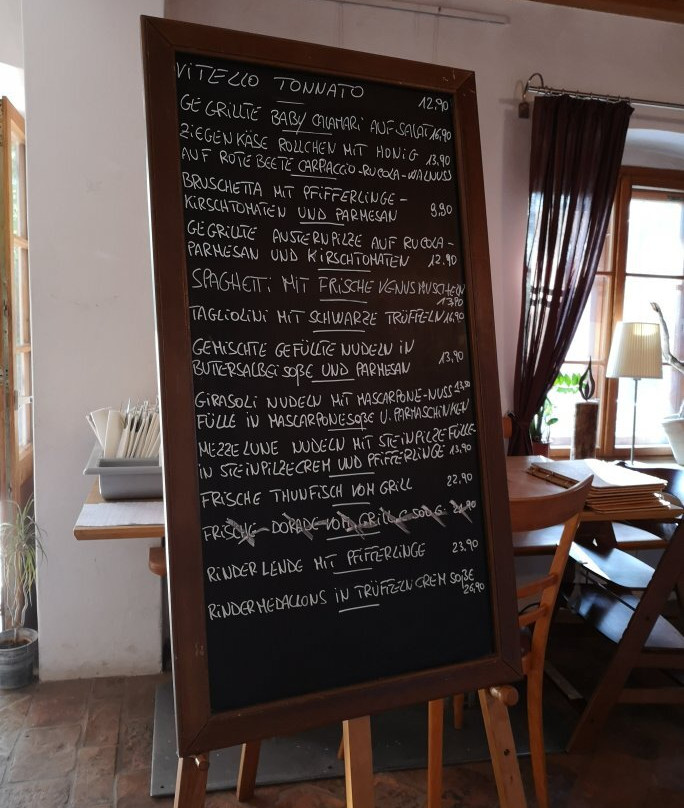 VITELLO TONNATO 12,90
GEGRILLTE BABY CALAMARI AUF SALAT 16,90
ZIEGENKÄSE RÖLLCHEN MIT HONIG 13,90
AUF ROTE BEETE CARPACCIO-RUCOLA-WALNUSS
BRUSCHETTA MIT PFIFFERLINGE -
KIRSCHTOMATEN UND PARMESAN 9,90
GEGRILLTE AUSTERNPILZE AUF RUCOLA -
PARMESAN UND KIRSCHTOMATEN 12,90
SPAGHETTI MIT FRISCHE VENUSMUSCHELN
13,90
TAGLIOLINI MIT SCHWARZE TRÜFFELN 16,90
GEMISCHTE GEFÜLLTE NUDELN IN
BUTTERSALBEI SOßE UND PARMESAN 13,90
GIRASOLI NUDELN MIT MASCARPONE-NUSS 13,50
FÜLLE IN MASCARPONESOßE U. PARMASCHINKEN
MEZZELUNE NUDELN MIT STEINPILZE FÜLLE
IN STEINPILZECREM UND PFIFFERLINGE 13,90
FRISCHE THUNFISCH VOM GRILL 22,90
FRISCHE DORADE VOM GRILL C. 500 G.
RINDERLENDE MIT PFIFFERLINGE 23,90
RINDERMEDALLONS IN TRÜFFELN CREM SOßE
26,90